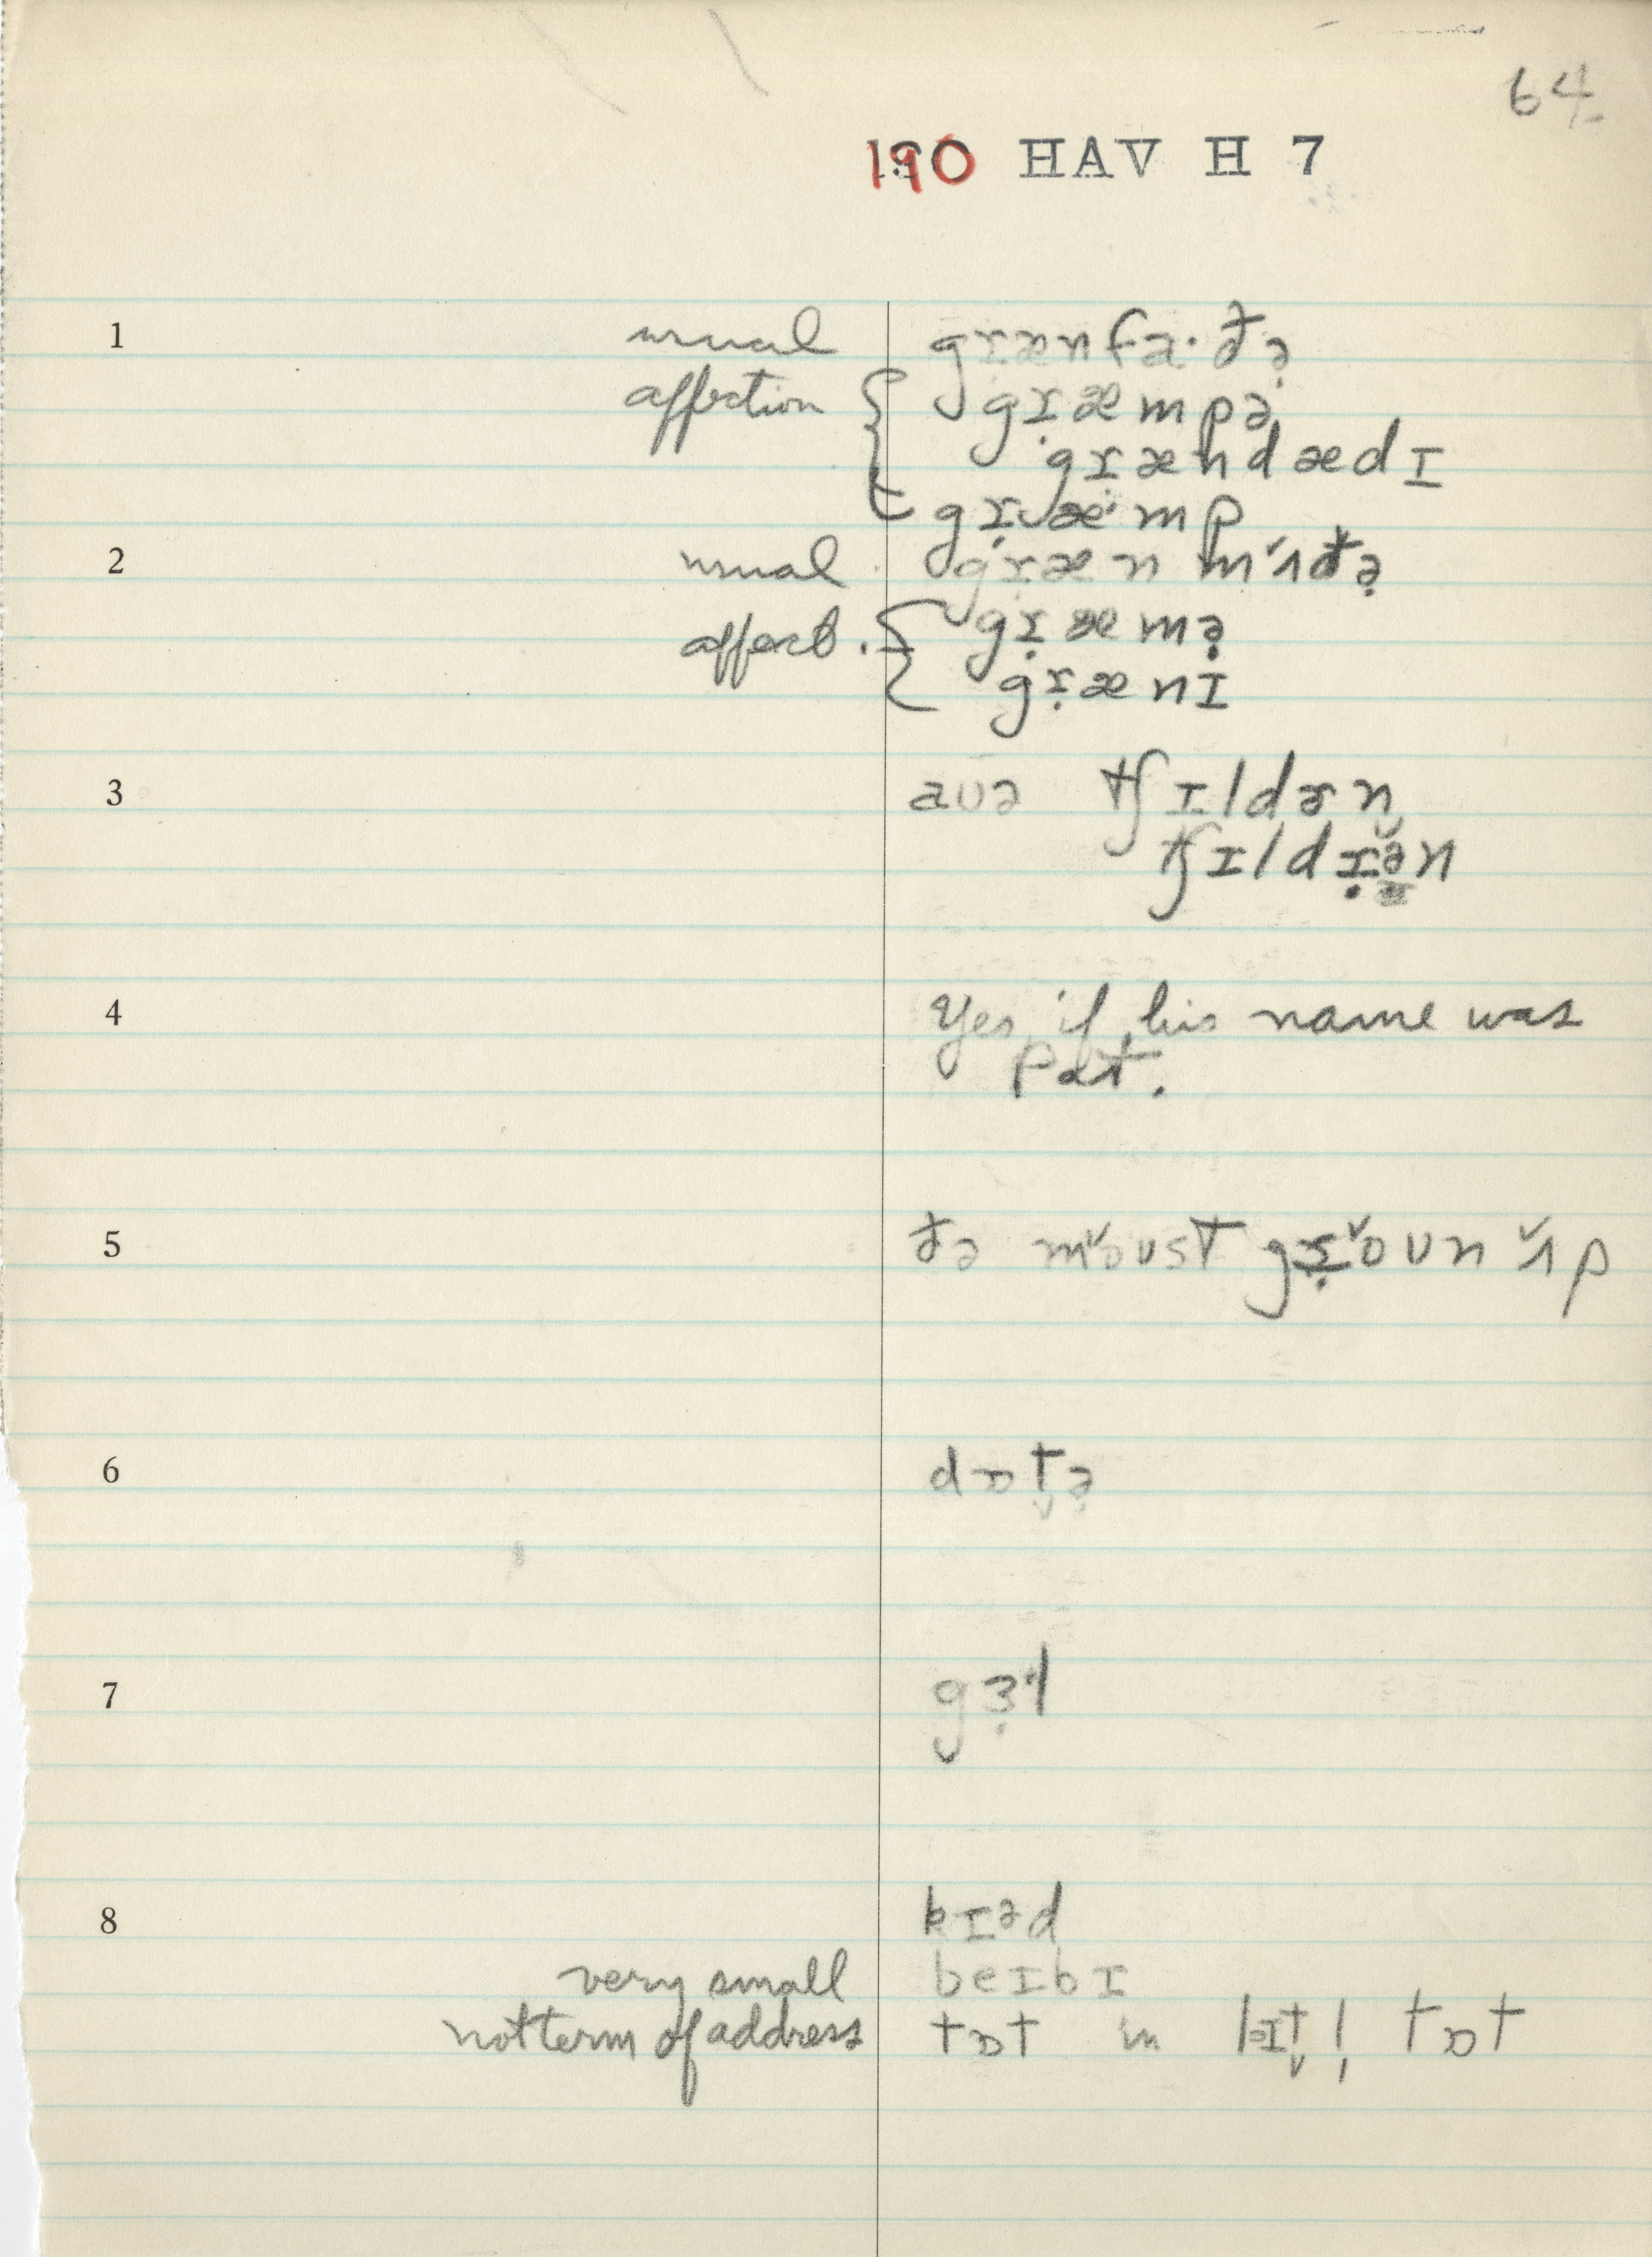 64
190 HAV H 7
1 usual grænfa·ðə̣
affection { græmpə
grændædɪ
græ·mp
2 usual græn mˇʌðə̣
affect. { græmə̣
grænɪ
3 aʊə tʃɪldɚn
tʃɪldrə̆n
4 Yes, if his name was
Pat.
5 ðə mˇoʊst grˇoʊn ˇʌp
6 dɒt̬ə̣
7 gɜ̣˞l
8 kɪəd
very small beɪbɪ
not term of address tɒt in lɪt̬l̩ tɒt